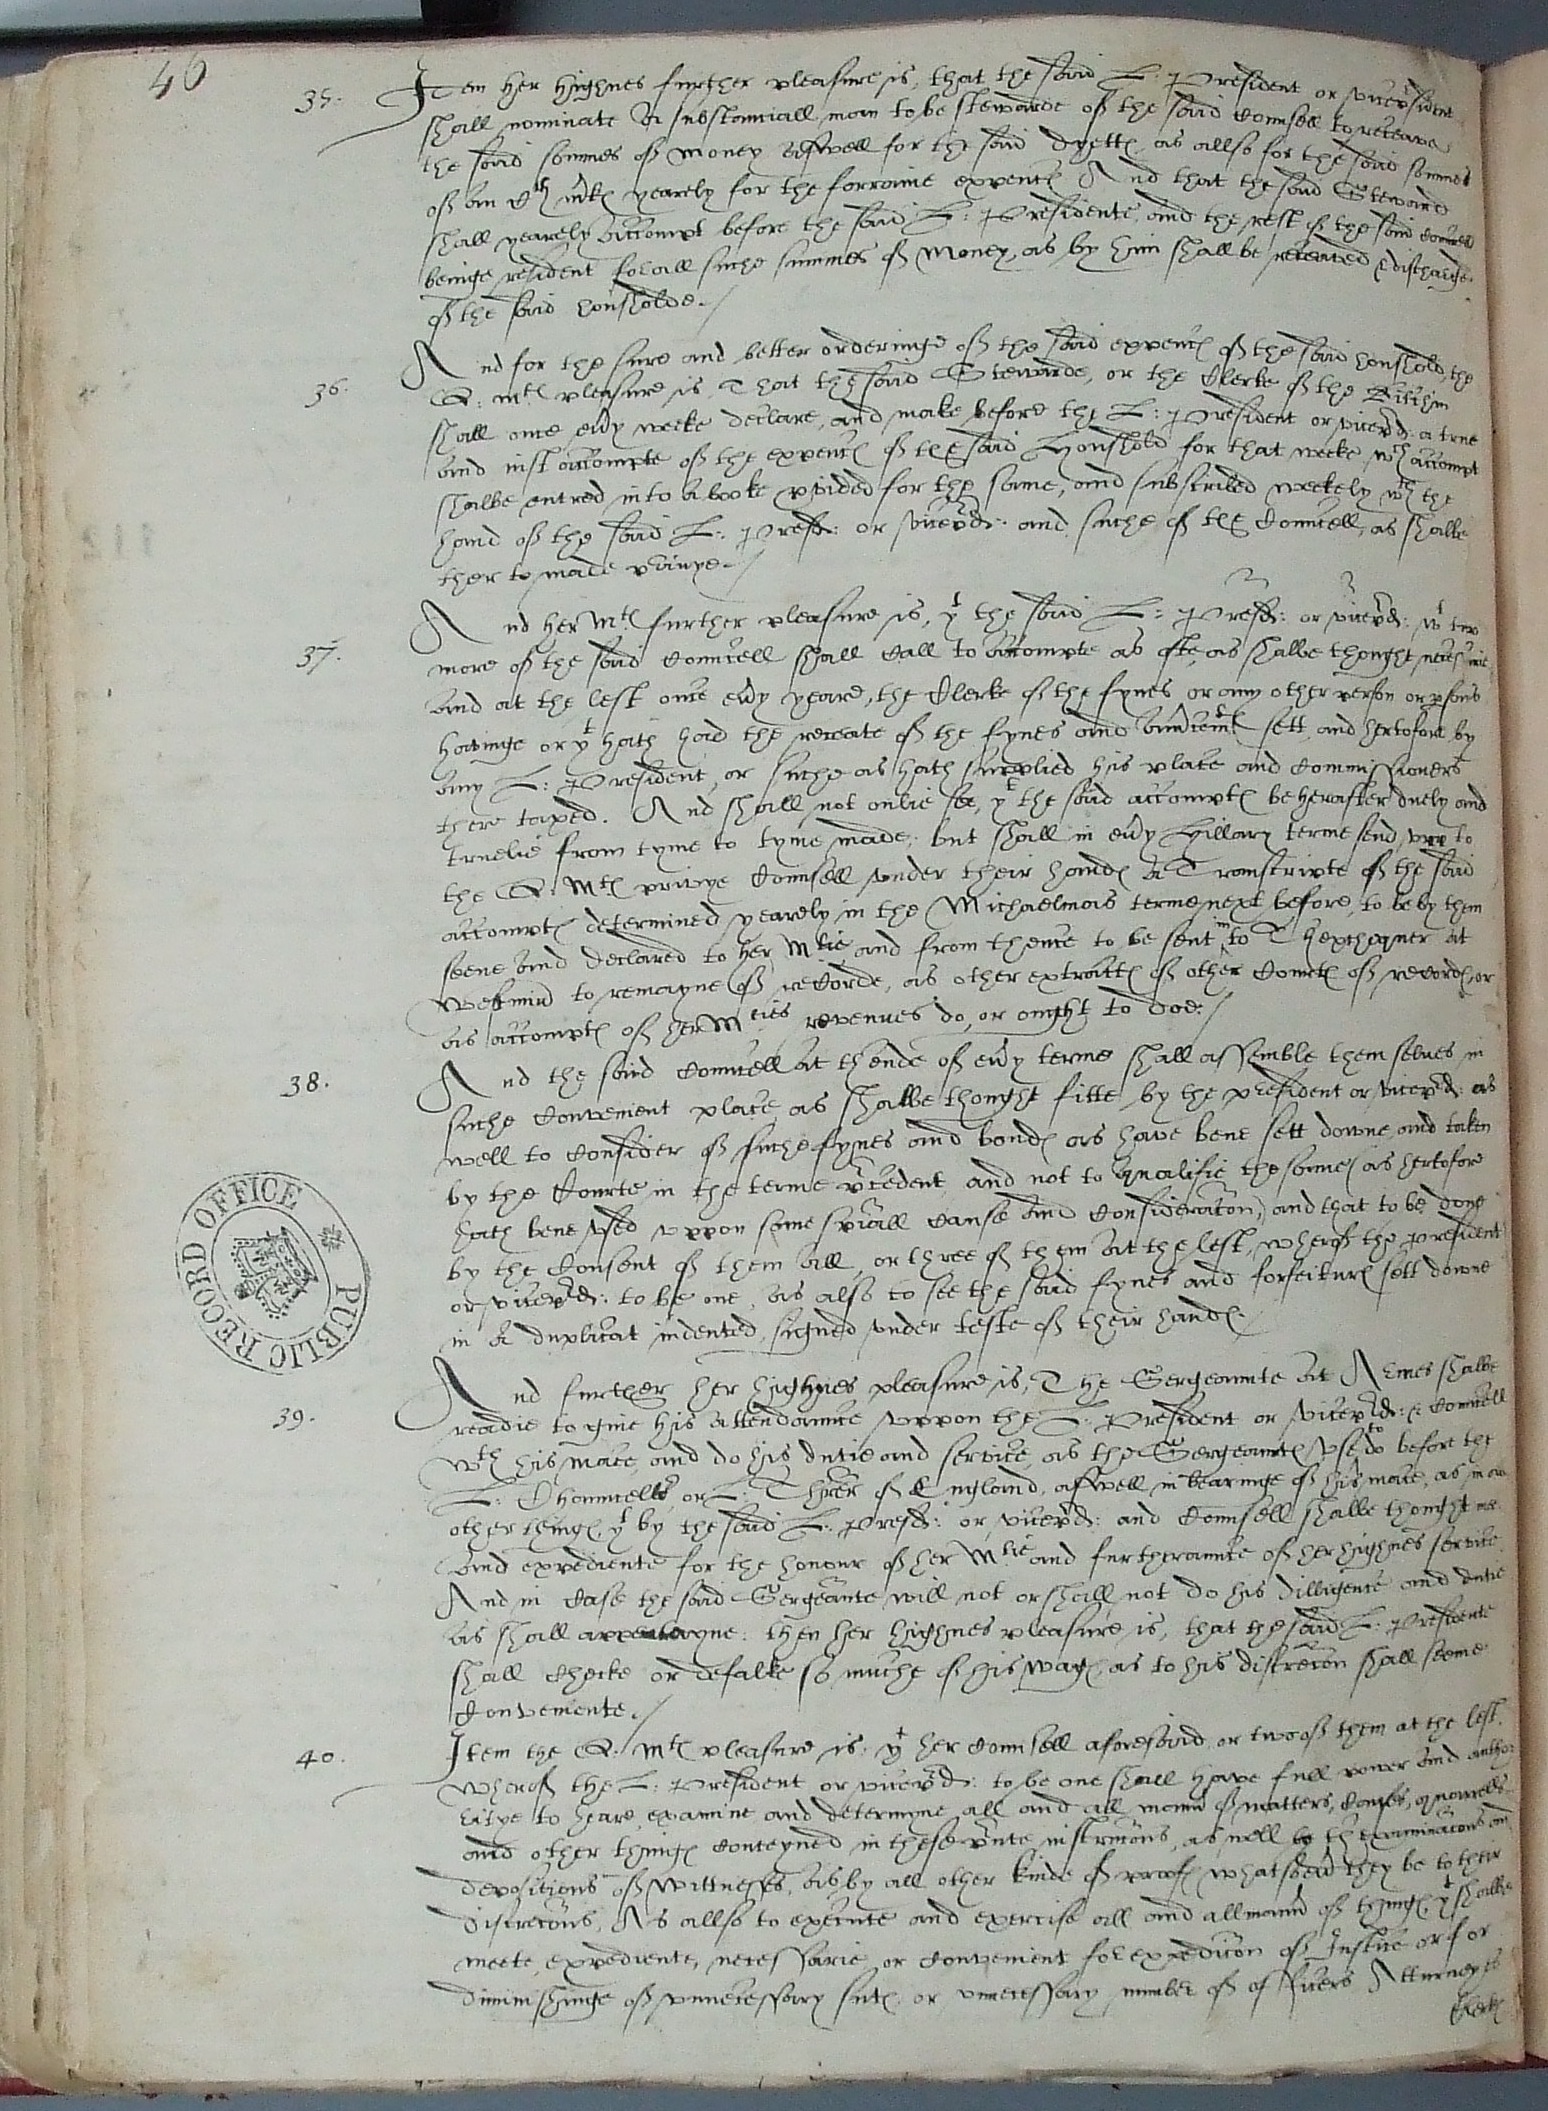 46
35. Item her highnes further pleasure is, that the said L: President or vicepresident
shall nominate a substanciall man to be stewarde of the said Counsell to receave
the said sommes of money aswell for the said dyett as allso for the said sommes
of an Cth mks yearely for the forraine expences And that the said Steward
shall yearely accompt before the said L: Presidente, and the rest of the said Councell
beinge resident for all suche summes of money, as by him shall be receaved & discharge
of the said housholde./
36. And for the sure and better orderinge of the said expences of the said houshold, the
Q: mts pleasure is, That the said Stewarde, or the Clerke of the Kitchin
shall once evy weeke declare, and make before the L: President or vicepd: a true
and iust accompte of the expences of the said Houshold for that weeke wch accompt
shalbe entred into a booke pvided for the same, and subscribed weekely wth the
hand of the said L: Presd: or vicepd: and suche of the Councell, as shalbe
ther to made privye./
37. And her Mts further pleasure is, yt the said L: Presd: or vicepd: wt two
more of the said Councell shall call to accompte as ofte, as shalbe thought necessarie
and at the lest once evy yeare, the Clerke of the fynes or any other person or psons
havinge or yt hath had the receate of the fynes and amcemts sett and hertofore by
any L: President, or suche as hath supplied his place and Commissioners
there taxed. And shall not onlie see, yt the said accompts be herafter duely and
truelie from tyme to tyme made: but shall in evy Hillary terme send upp to
the Q: Mts privye Counsell under their hands a Transcripte of the said
accompts determined yearely in the Michaelmas terme next before, to be by them
seene and declared to her Mtie and from thence to be sent into Thexchequer at
Westmr to remayne of recorde, as other extracts of other Courts of records, or
as accompts of her Mties revenues do, or ought to doe:/
38. And the said Councell at thende of evy terme shall assemble them selves in
suche Convenient place as shalbe thought fitte by the president or vicepd: as
well to Consider of suche fynes and bonds as have bene sett downe and taken
by the Courte in the terme pcedent, and not to qualifie the same (as hertofore
hath bene used uppon some spiall cause and Consideracon,) and that to be done
by the Consent of them all, or three of them at the lest, wherof the president
or vicepd: to be one, as also to see the said fynes and forfeitures sett downe
in a duplicat indented, signed under teste of their hands./
39. And further her highnes pleasure is, The Sergeaunte at Armes shalbe
readie to give his attendaunce uppon the L: President or vicepd: & Councell
wth his mace, and do his dutie and service, as the Sergeaunts use to do before the
L: Chauncellr or L: Threr of England, aswell in bearinge of his mace, as in all
other things, yt by the said L: Presd: or vicepd: and Counsell shalbe thought me
and expediente for the honour of her Mtie and furtheraunce of her highnes service.
And in case the said Sergeante will not or shall not do his dilligence and dutie
as shall appertayne: then her highnes pleasure is, that the said L: Presidente
shall Checke or defalke so muche of his wags, as to his discrecon shall seeme
Conveniente./
40. Item the Q: Mts pleasure is, yt her Counsell aforesaid, or two of them at the lest.
wherof the L: President or vicepd: to be one shall have full power and autho
ritye to heare, examine and determyne all and all mann of matters, causes, quarrells
and other things Conteyned in these psente instrucons, as well by thexaminacons and
depositions of wittnesses, as by all other kinde of proofs whatsoevr they be to their
discrecons, As allso to execute and exercise all and all mann of things, yt shalbe
meete, expediente, necessarie or Convenient for expedicon of Justice or for
diminishinge of unnecessary suts, or unnecessary number of officers Atturneyes
Clerks
PUBLIC RECORD OFFICE